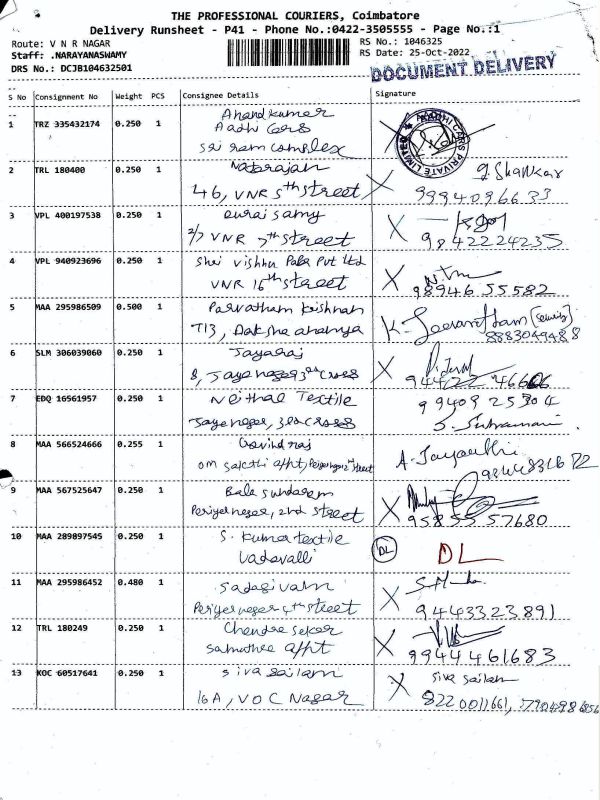 THE PROFESSIONAL COURIERS, Coimbatore
Delivery Runsheet - P41 - Phone No.:0422-3505555 - Page No.:1
Route: V N R NAGAR
Staff: .NARAYANASWAMY
DRS No.: DCJB104632501
RS No.: 1046325
RS Date: 25-Oct-2022
DOCUMENT DELIVERY
S No Consignment No Weight PCS Consignee Details Signature
1 TRZ 335432174 0.250 1 Anandkumar
Aadhi Cars
Sri ram complex
AADHI CARS PRIVATE LIMITED
2 TRL 180400 0.250 1 Natarajan g. Shankar
46, VNR 5th street X 9994096633
3 VPL 400197538 0.250 1 Duraisamy
2/7 VNR 7th street X 9842224235
4 VPL 940923696 0.250 1 Shri Vishnu Pvt Ltd
VNR 16th street X 98946 55582
5 MAA 295986509 0.500 1 Parvatham Krishnan
T13, Aaksha ananya 8883049488
6 SLM 306039060 0.250 1 Jayaraj
8, Jayanagar 3rd cross X
7 EDQ 16561957 0.250 1 Neithal Textile 99409 25304
Jayanagar, 3rd cross S. Subramani.
8 MAA 566524666 0.255 1 Govindraj A. Jayanthi
om sakthi appt, Periyanagar 2nd street
9 MAA 567525647 0.250 1 Bala sundaram
Periyanagar, 2nd street X 95855 57680
10 MAA 289897545 0.250 1 S. Kumar textile DL DL
Vadavalli
11 MAA 295986452 0.480 1 Sadasivam
Periyanagar 4th street X 9443323891
12 TRL 180249 0.250 1 Chandra sekar
appt X 9944461683
13 KOC 60517641 0.250 1 Siva sailam X Siva sailam
16A, VOC Nagar 8220011661,